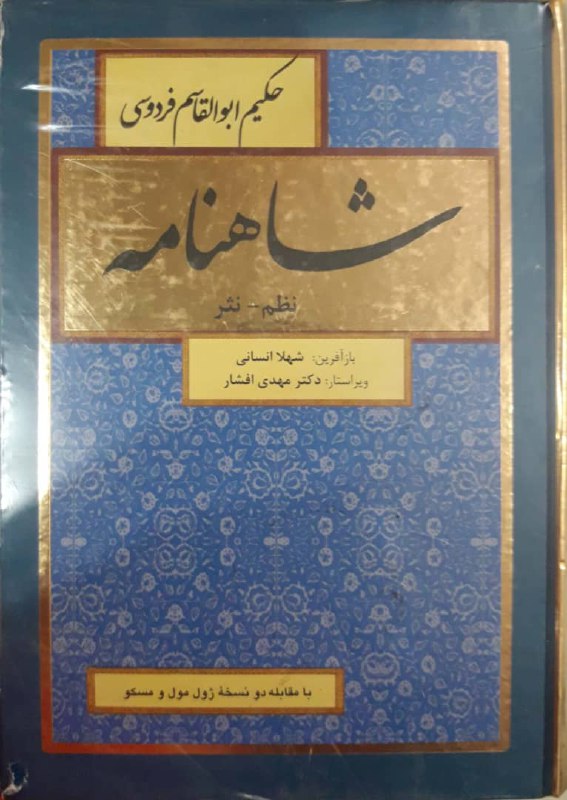 حکیم ابوالقاسم فردوسی
شاهنامه
نظم - نثر
بازآفرین: شهلا انسانی
ویراستار: دکتر مهدی افشار
با مقابله دو نسخهٔ ژول مول و مسکو